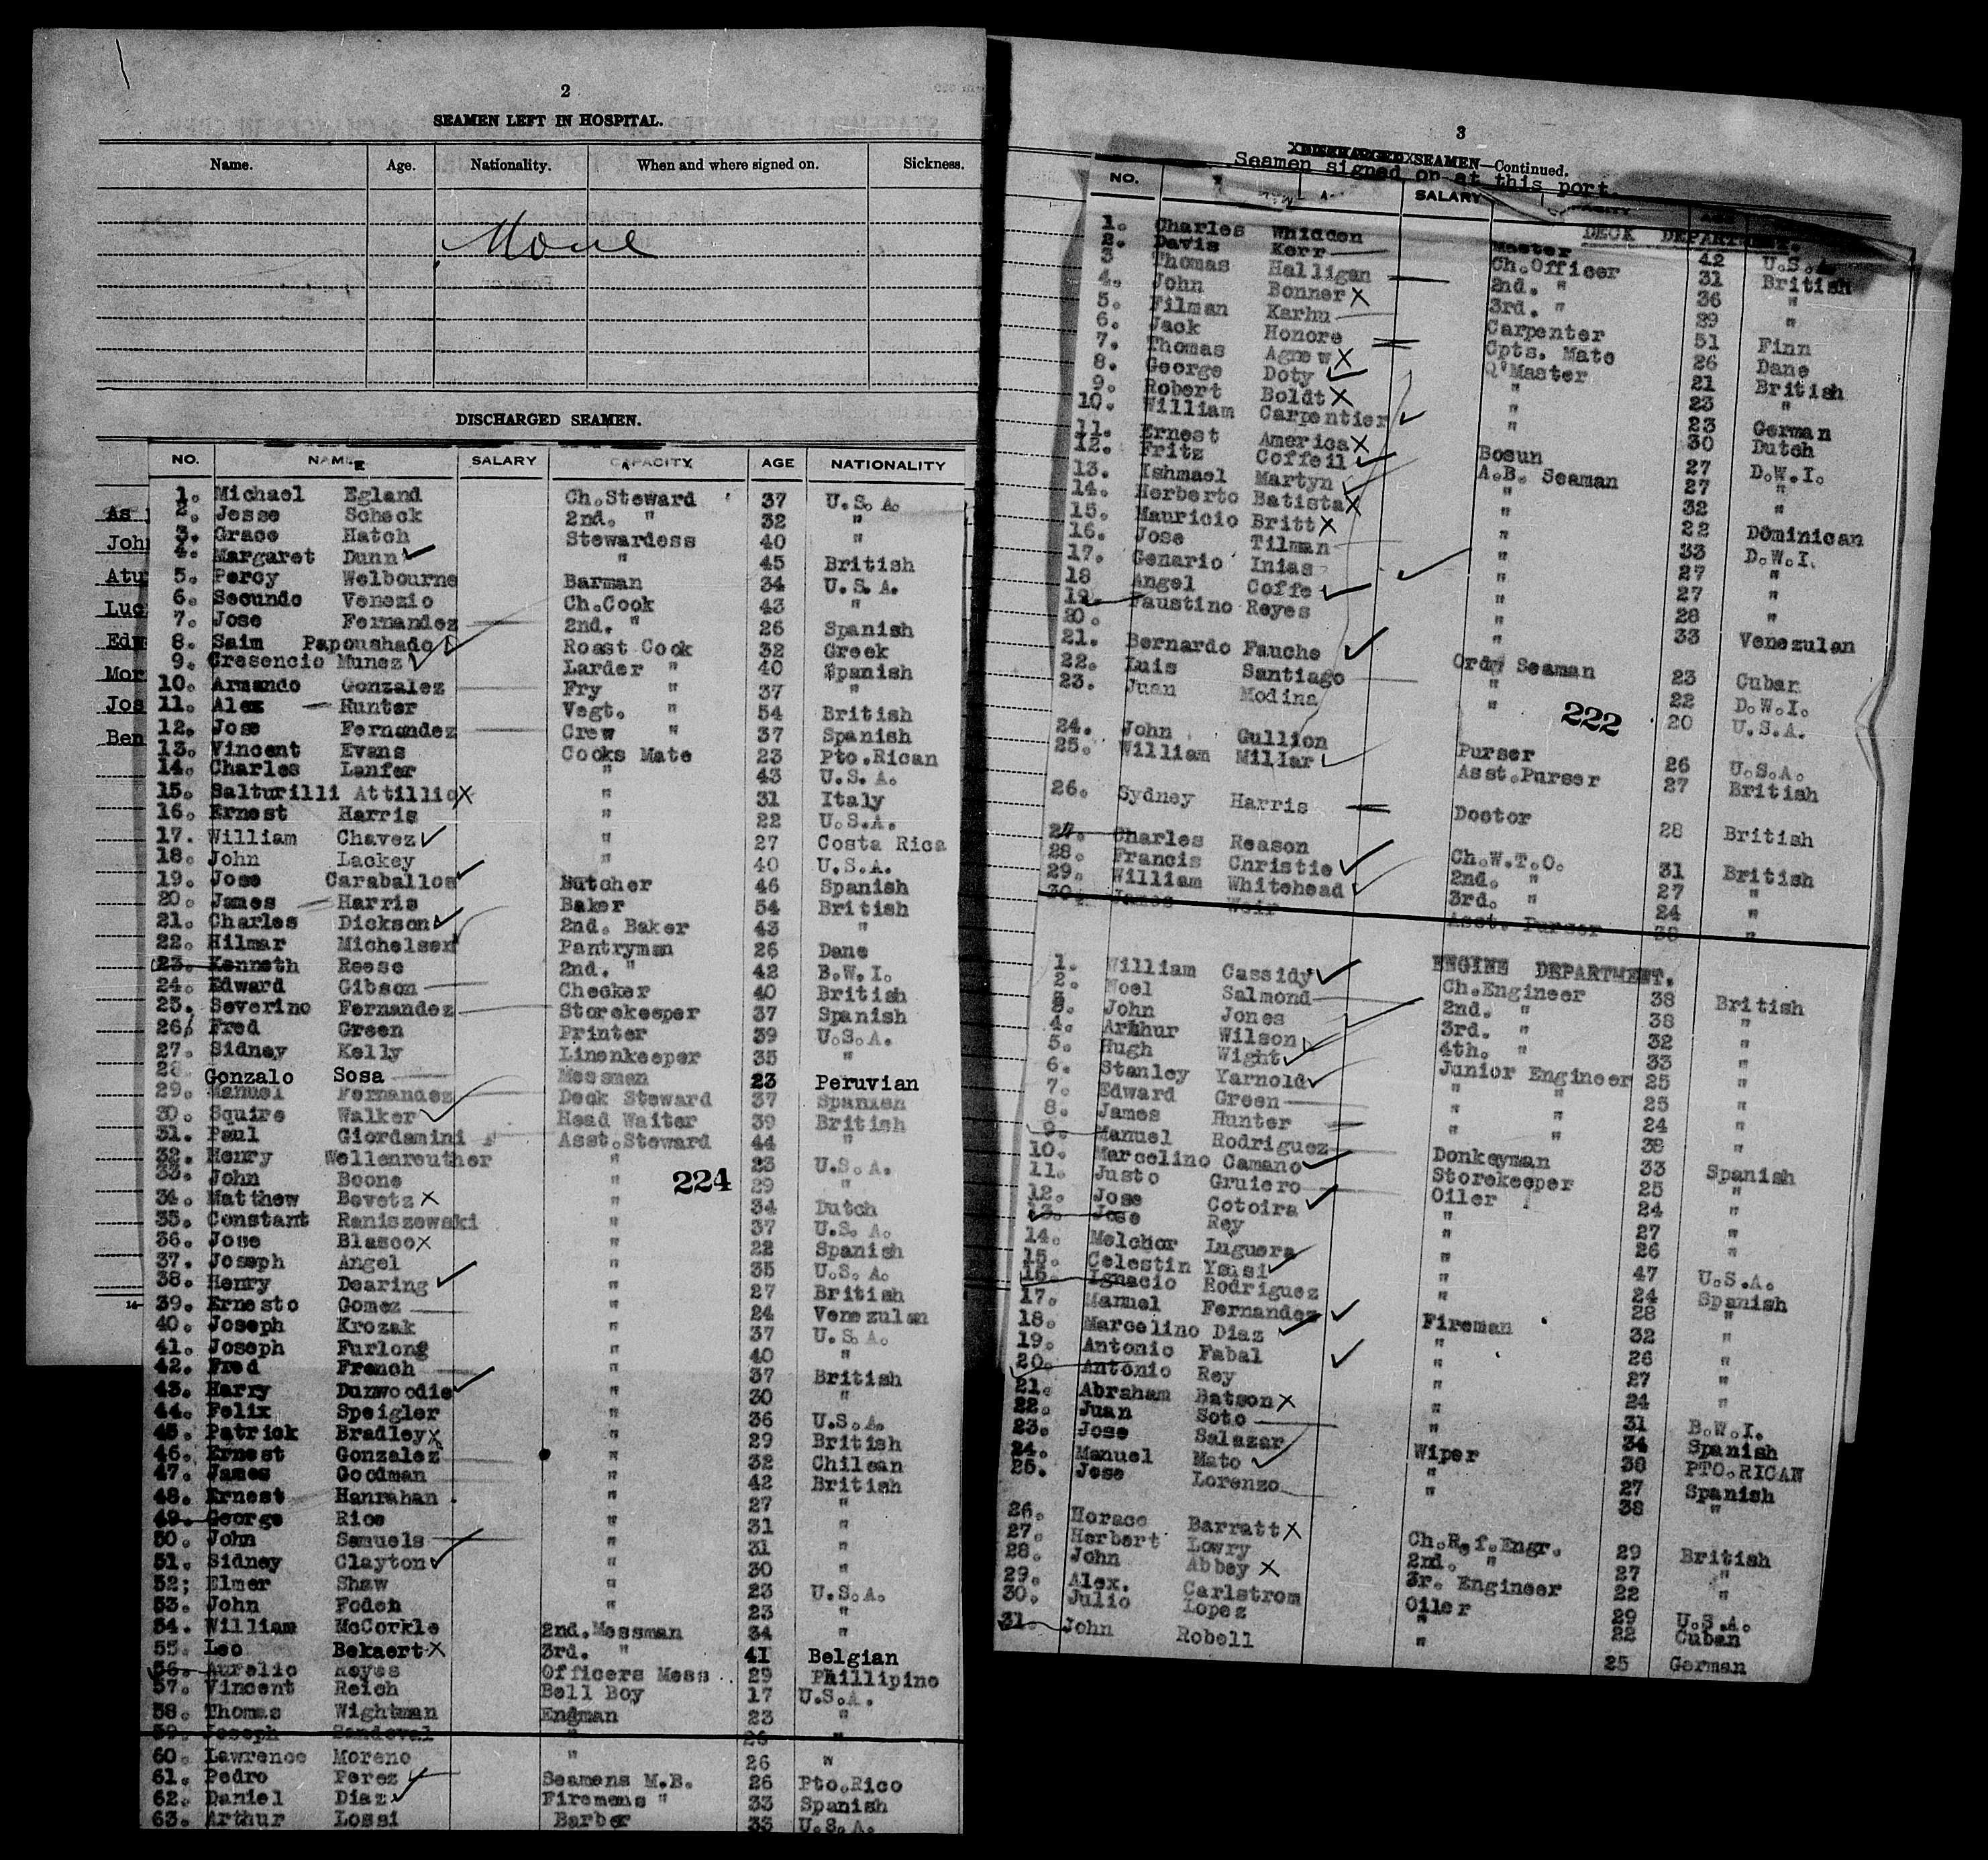 2
SEAMEN LEFT IN HOSPITAL.
Name. Age. Nationality. When and where signed on. Sickness.
None
DISCHARGED SEAMEN.
NO. NAME SALARY CAPACITY AGE NATIONALITY
1. Michael Egland Ch.Steward 37 U.S.A.
2. Jesse Scheck 2nd. " 32 "
3. Grace Hatch Stewardess 40 "
4. Margaret Dunn " 45 British
5. Percy Welbourne Barman 34 U.S.A.
6. Secundo Venezio Ch.Cook 43 "
7. Jose Fernandez 2nd. " 26 Spanish
8. Saim Papoushado Roast Cook 32 Greek
9. Cresencio Munez Larder " 40 Spanish
10. Armando Gonzalez Fry " 37 "
11. Alex Hunter Vegt. " 54 British
12. Jose Fernandez Crew " 37 Spanish
13. Vincent Evans Cooks Mate 23 Pto.Rican
14. Charles Lanfer " 43 U.S.A.
15. Salturilli Attillio " 31 Italy
16. Ernest Harris " 22 U.S.A.
17. William Chavez " 27 Costa Rica
18. John Lackey " 40 U.S.A.
19. Jose Caraballos Butcher 46 Spanish
20. James Harris Baker 54 British
21. Charles Dickson 2nd. Baker 43 "
22. Hilmar Michelsen Pantryman 26 Dane
23. Kenneth Reese 2nd. " 42 B.W.I.
24. Edward Gibson Checker 40 British
25. Severino Fernandez Storekeeper 37 Spanish
26. Fred Green Printer 39 U.S.A.
27. Sidney Kelly Linenkeeper 35 "
28. Gonzalo Sosa Messman 23 Peruvian
29. Manuel Fernandez Deck Steward 37 Spanish
30. Squire Walker Head Waiter 39 British
31. Paul Giordamini Asst.Steward 44 "
32. Henry Wellenreuther " 23 U.S.A.
33. John Boone " 29 "
224
34. Matthew Bevetz " 34 Dutch
35. Constant Raniszewski " 37 U.S.A.
36. Jose Blasco " 22 Spanish
37. Joseph Angel " 35 U.S.A.
38. Henry Dearing " 27 British
39. Ernesto Gomez " 24 Venezulan
40. Joseph Krozak " 37 U.S.A.
41. Joseph Furlong " 40 "
42. Fred French " 37 British
43. Harry Dunwoodie " 30 "
44. Felix Speigler " 36 U.S.A.
45. Patrick Bradley " 29 British
46. Ernest Gonzalez " 32 Chilean
47. James Goodman " 42 British
48. Ernest Hanrahan " 27 "
49. George Rice " 31 "
50. John Samuels " 31 "
51. Sidney Clayton " 30 "
52; Elmer Shaw " 23 U.S.A.
53. John Foden " 23 "
54. William McCorkle 2nd.Messman 34 "
55. Leo Bekaert 3rd. " 41 Belgian
56. Aurelio Reyes Officers Mess 29 Phillipino
57. Vincent Reich Bell Boy 17 U.S.A.
58. Thomas Wightman Engman 23 "
59. Joseph Sandoval " 26 "
60. Lawrence Moreno " 26 "
61. Pedro Perez Seamens M.B. 26 Pto.Rico
62. Daniel Diaz Firemens " 33 Spanish
63. Arthur Lossi Barber 33 U.S.A.
As
John
Atu
Luc
Edw
Mor
Jos
Ben
14-
3
DISCHARGED SEAMEN—Continued.
Seamen signed on at this port.
NO. SALARY
DECK DEPARTMENT.
1. Charles Whidden Master 42 U.S.A.
2. Davis Kerr Ch.Officer 31 British
3 Thomas Halligan 2nd. " 36 "
4. John Bonner 3rd. " 29 "
5. Filman Karhu Carpenter 51 Finn
6. Jack Honore Cpts. Mate 26 Dane
7. Thomas Agnew Q'Master 21 British
8. George Doty " 23 "
9. Robert Boldt " 23 German
10. William Carpentier " 30 Dutch
11. Ernest America Bosun 27 D.W.I.
12. Fritz Coffeil A.B. Seaman 27 "
13. Ishmael Martyn " 32 "
14. Herberto Batista " 22 Dominican
15. Mauricio Britt " 33 D.W.I.
16. Jose Tilman " 27 "
17. Genario Inias " 27 "
18 Angel Coffe " 28 "
19. Faustino Reyes " 33 Venezulan
20.
21. Bernardo Fauche Ordy Seaman 23 Cuban
22. Luis Santiago " 22 D.W.I.
23. Juan Modina " 20 U.S.A.
222
24. John Gullion Purser 26 U.S.A.
25. William Miliar Asst.Purser 27 British
26. Sydney Harris Doctor 28 British
27. Charles Reason Ch.W.T.O. 31 British
28. Francis Christie 2nd. " 27 "
29. William Whitehead 3rd. " 24 "
30. James Weir Asst. Purser 38 "
ENGINE DEPARTMENT.
1. William Cassidy Ch.Engineer 38 British
2. Noel Salmond 2nd. " 38 "
3. John Jones 3rd. " 32 "
4. Arthur Wilson 4th. " 33 "
5. Hugh Wight Junior Engineer 25 "
6. Stanley Yarnold " " 25 "
7. Edward Green " " 24 "
8. James Hunter " " 38 "
9. Manuel Rodriguez Donkeyman 33 Spanish
10. Marcelino Camano Storekeeper 25 "
11. Justo Gruiero Oiler 24 "
12. Jose Cotoira " 27 "
13. Jose Rey " 26 "
14. Melchor Luguera " 47 U.S.A.
15. Celestin Ysusi " 24 Spanish
16. Ignacio Rodriguez " 28 "
17. Manuel Fernandez Fireman 32 "
18. Marcelino Diaz " 26 "
19. Antonio Fabal " 27 "
20. Antonio Rey " 24 "
21. Abraham Batson " 31 B.W.I.
22. Juan Soto " 34 Spanish
23. Jose Salazar Wiper 38 PTO.RICAN
24. Manuel Mato " 27 Spanish
25. Jose Lorenzo " 38 "
26. Horace Barratt Ch.Ref.Engr. 29 British
27. Herbert Lowry 2nd. " 27 "
28. John Abbey 3r. Engineer 22 "
29. Alex. Carlstrom Oiler 29 U.S.A.
30. Julio Lopez " 22 Cuban
31. John Robell " 25 German